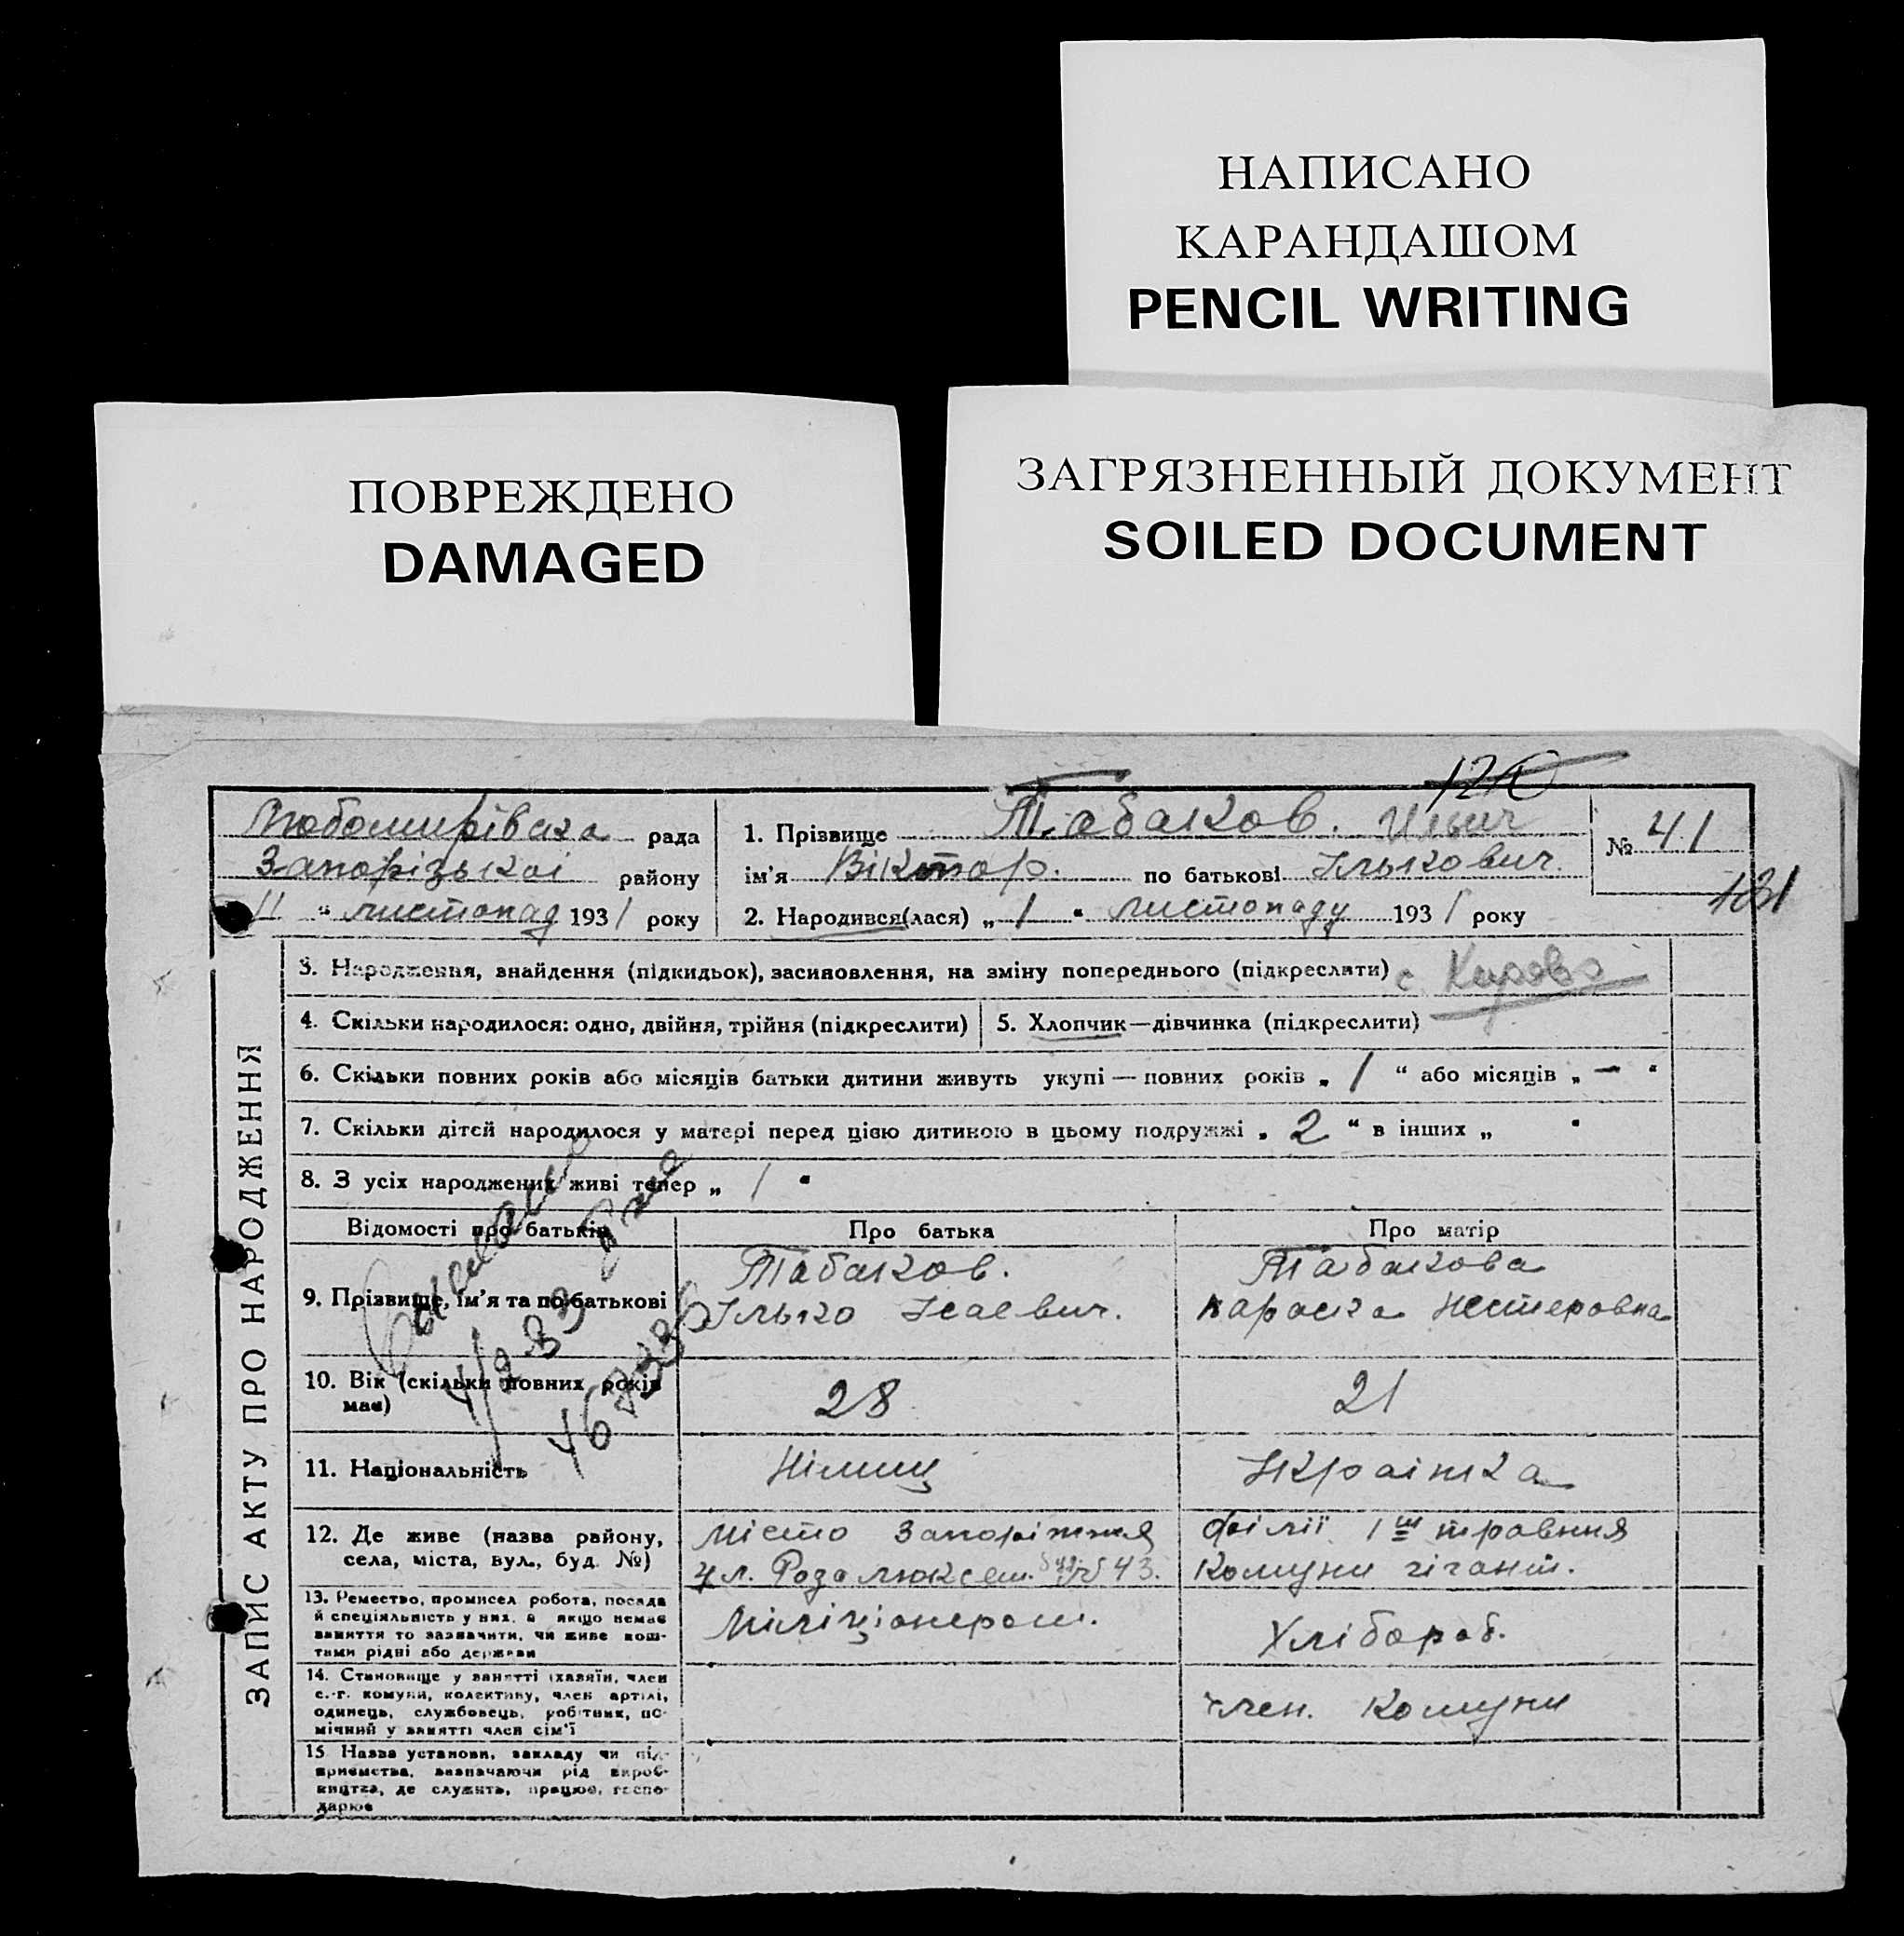 НАПИСАНО
КАРАНДАШОМ
PENCIL WRITING
ПОВРЕЖДЕНО
DAMAGED
ЗАГРЯЗНЕННЫЙ ДОКУМЕНТ
SOILED DOCUMENT
120
Любомирівська рада
Запорізькоі району
11 “ листопад 1931 року
1. Прізвище Табаков. Ильич
ім'я Віктор. по батькові Ількович.
2. Народився(лася) „ 1 “ листопаду 1931 року
№ 41
131
ЗАПИС АКТУ ПРО НАРОДЖЕННЯ
3. Народження, знайдення (підкидьок), засиновлення, на зміну попереднього (підкреслити) с. Кирово
4. Скільки народилося: одно, двійня, трійня (підкреслити)
5. Хлопчик—дівчинка (підкреслити)
6. Скільки повних років або місяців батьки дитини живуть укупі — повних років „ 1 “ або місяців „ — “
7. Скільки дітей народилося у матері перед цією дитиною в цьому подружжі „ 2 “ в інших „ “
8. З усіх народжених живі тепер „ 1 “
Відомості про батьків
Про батька
Про матір
9. Прізвище, ім'я та по батькові
Табаков.
Ілько Ісаевич.
Табакова
Параска Нестеровна
10. Вік (скільки повних років
має)
28
21
11. Національність
Німиц
Украінка
12. Де живе (назва району,
села, міста, вул., буд. №)
місто Запоріжжя
ул. Роза люксем. буд. № 43.
філії 1го травння
Комуни гігант.
13. Ремество, промисел робота, посада
й спеціяльність у них, а якщо немає
заняття то зазначити, чи живе кош-
тами рідні або держави
Міліціонером.
Хлібороб.
14. Становище у занятті (хазяїн, член
с.-г. комуни, колективу, член артілі,
одинець, службовець, робітник, по-
мічний у занятті член сім'ї
член. Комуни
15 Назва установи, закладу чи під-
приємства, зазначаючи рід вироб-
ництва, де служить, працює, госпо-
дарює